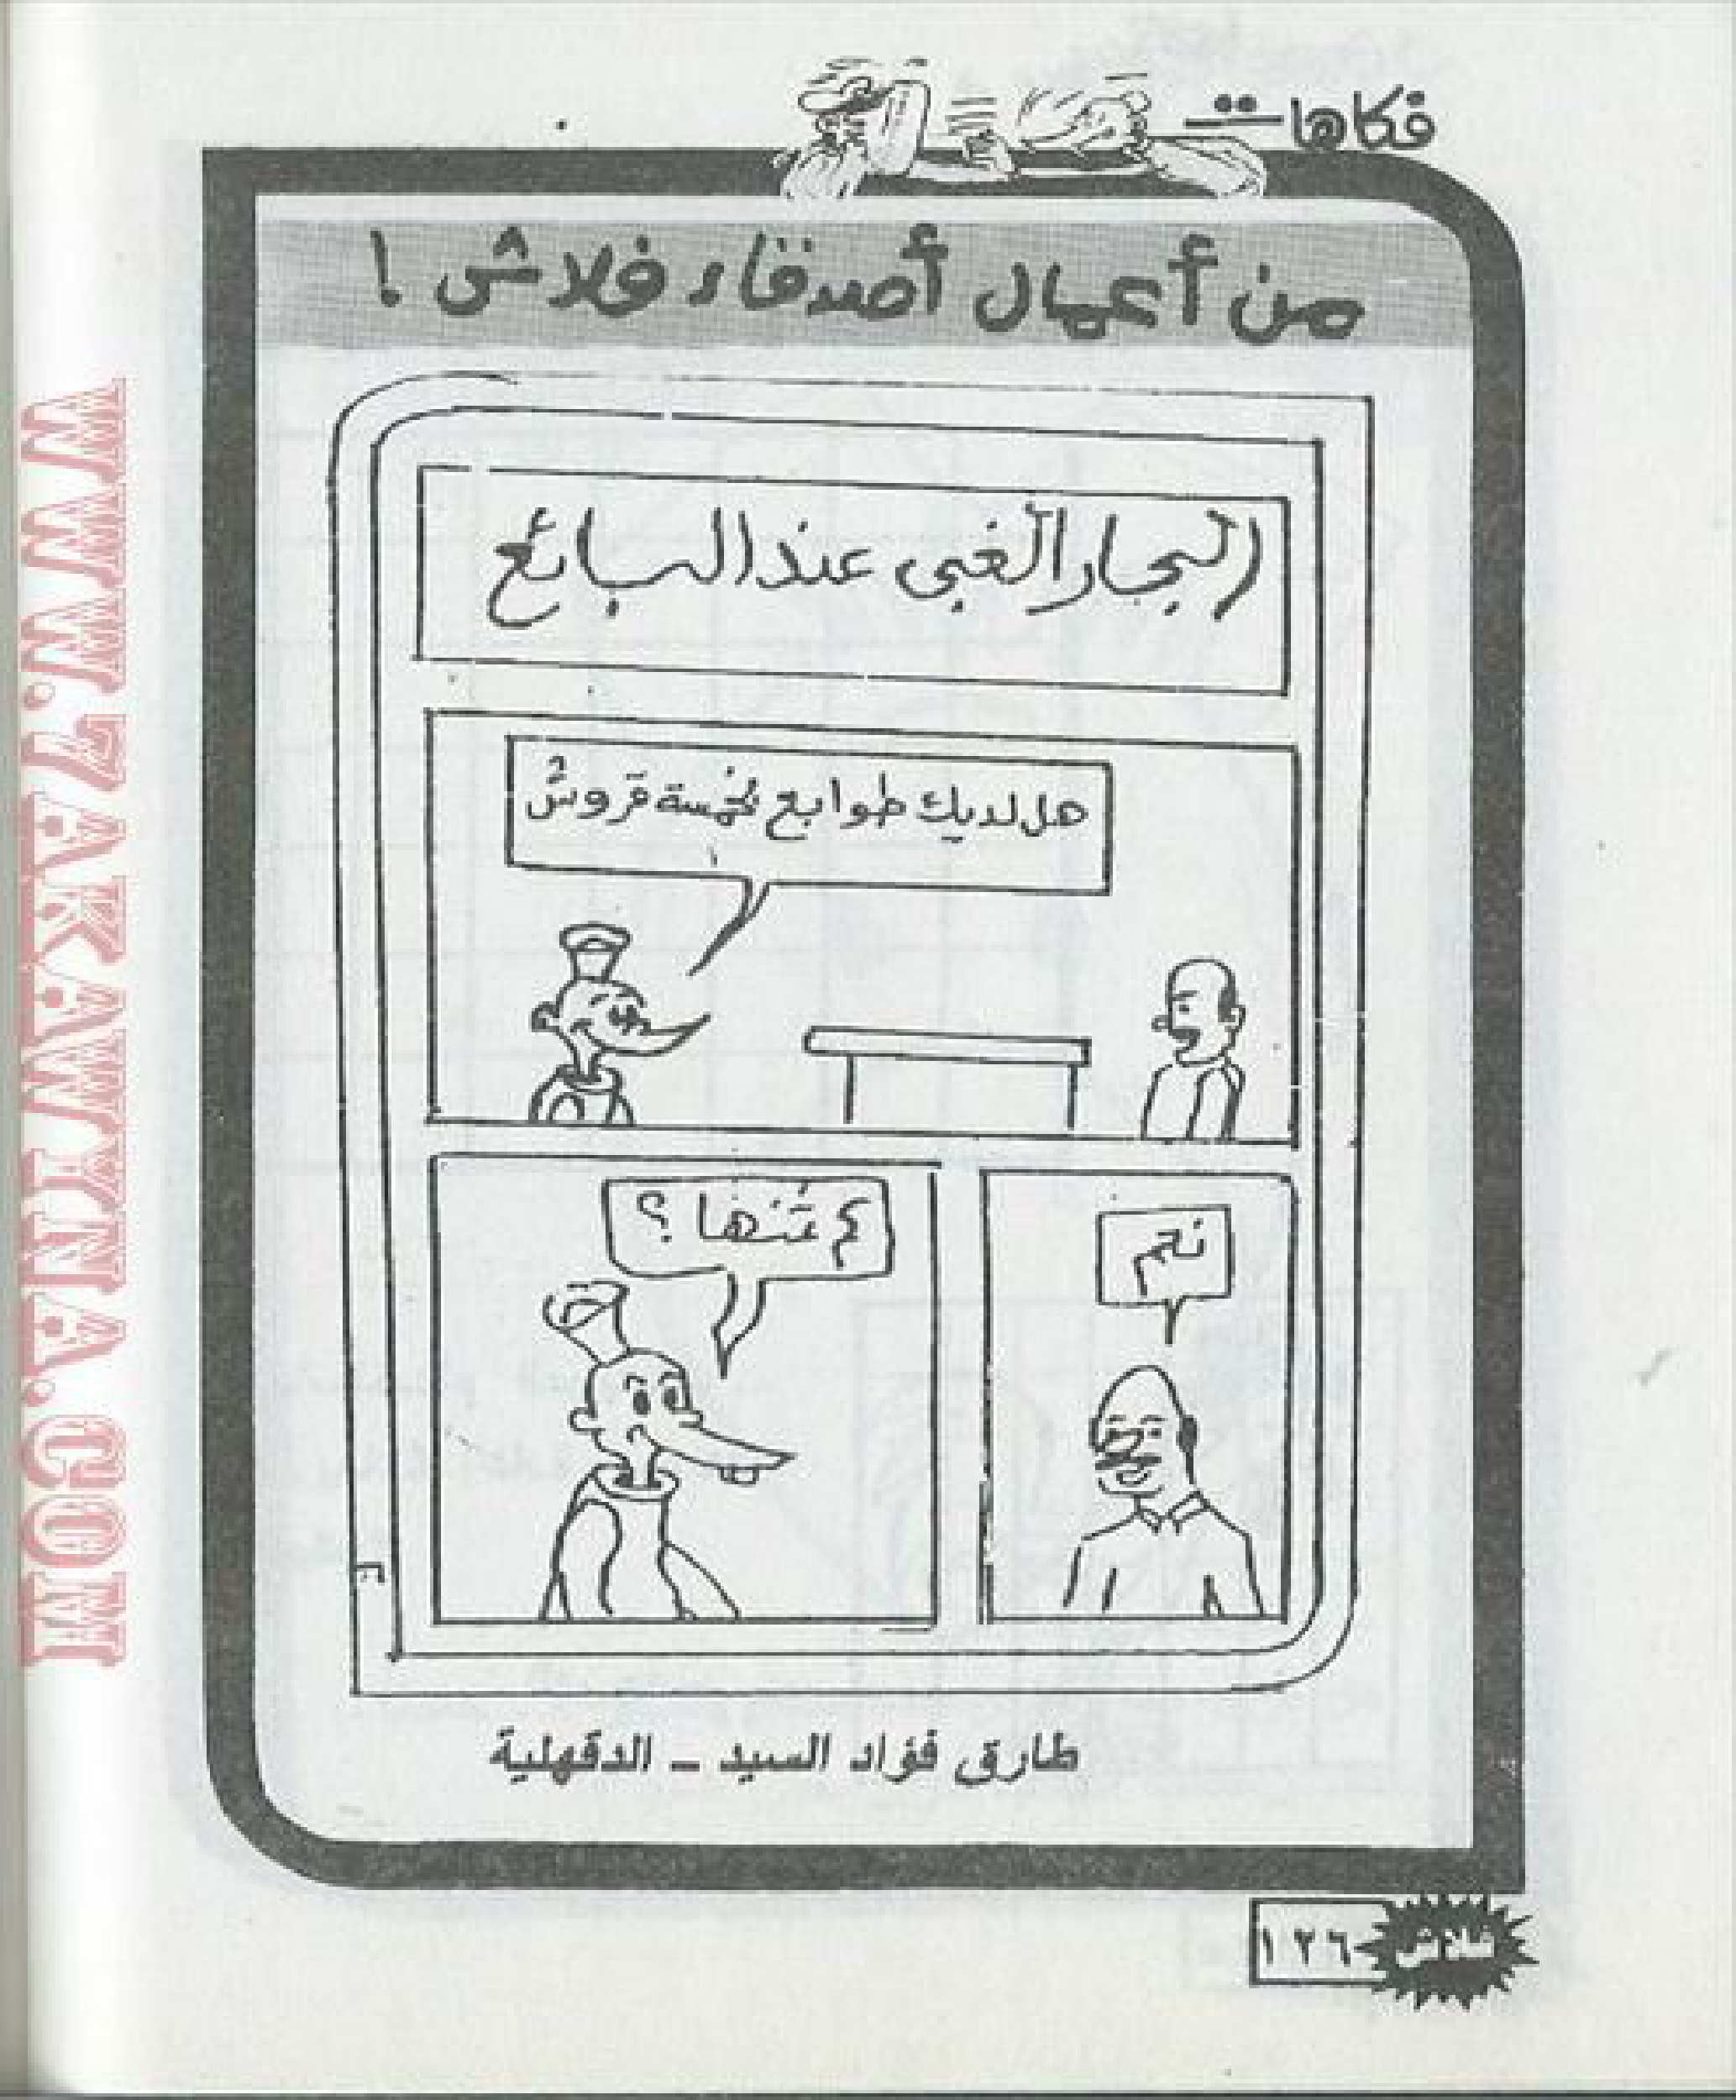 فكاهات
من أعمال أصدقاء فلاش !
الجار الغبى عند البائع
هل لديك طوابع بخمسة قروش
نعم
كم ثمنها ؟
طارق فؤاد السيد – الدقهلية
فلاش
١٢٦
WWW.7AKAWINA.COM